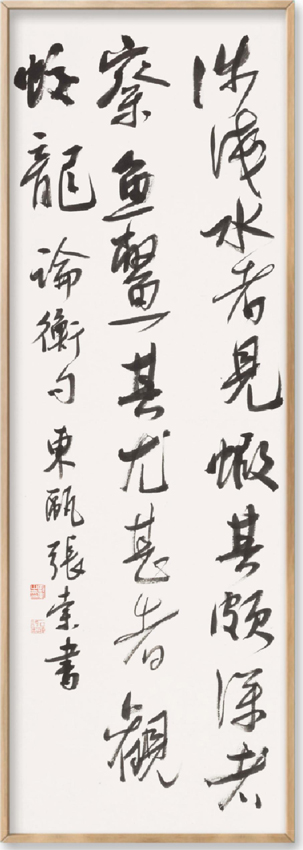 涉淺水者見蝦其頗深者
察魚鱉其尤甚者觀
蛟龍 論衡句 東甌張索書